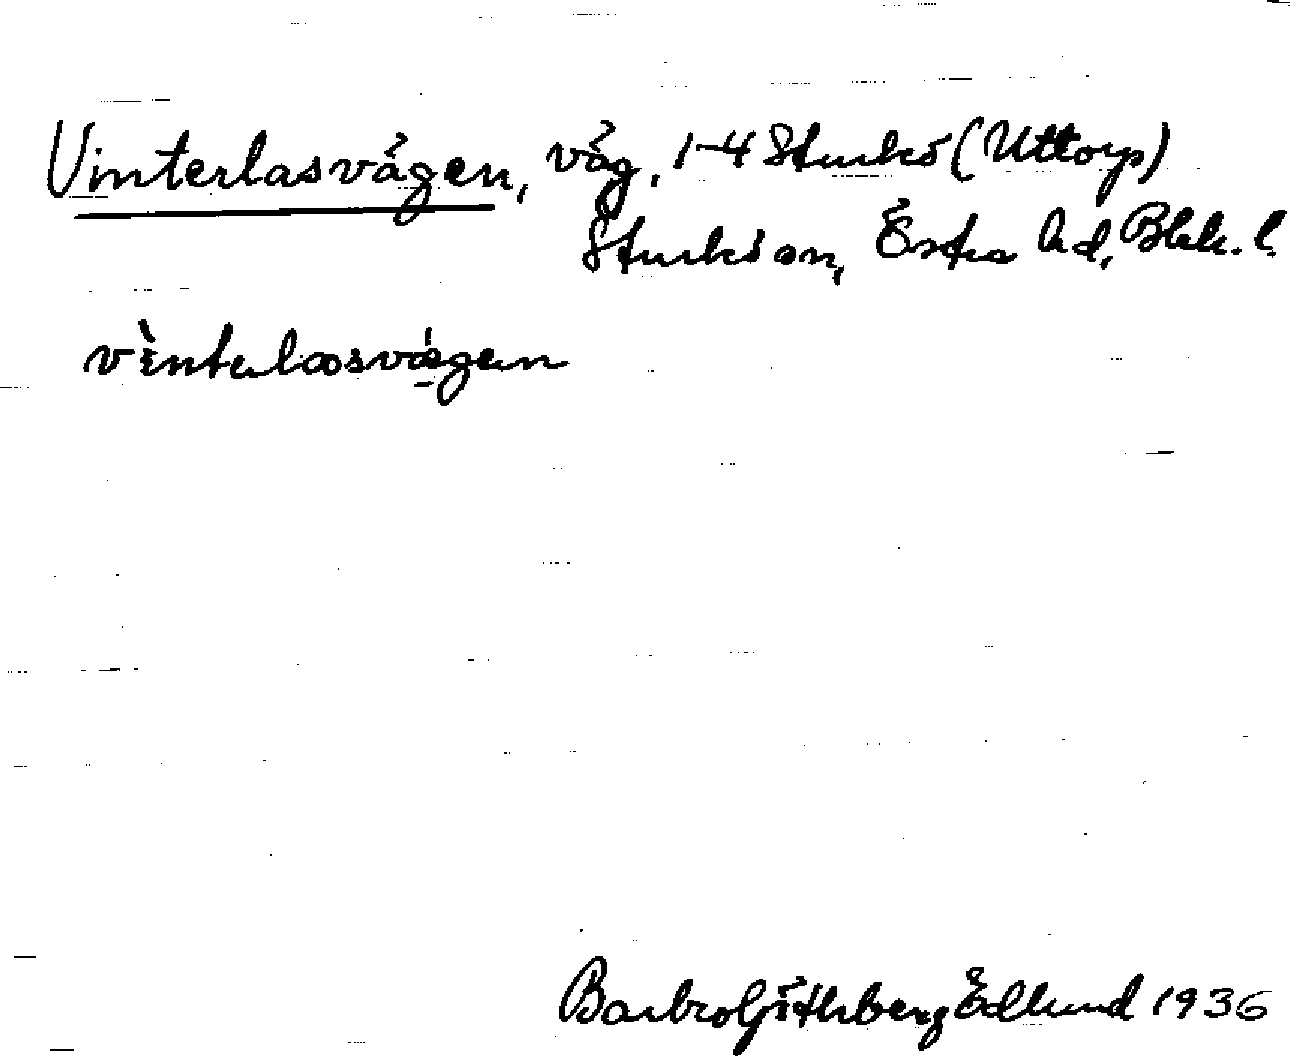 Vinterlasvägen, väg, 1-4 Sturkö (Uttorp)
Sturkö sn, Östra hd, Blek. l.
vìntɘlasvǽgɘn
Barbro Göthberg Edlund 1936